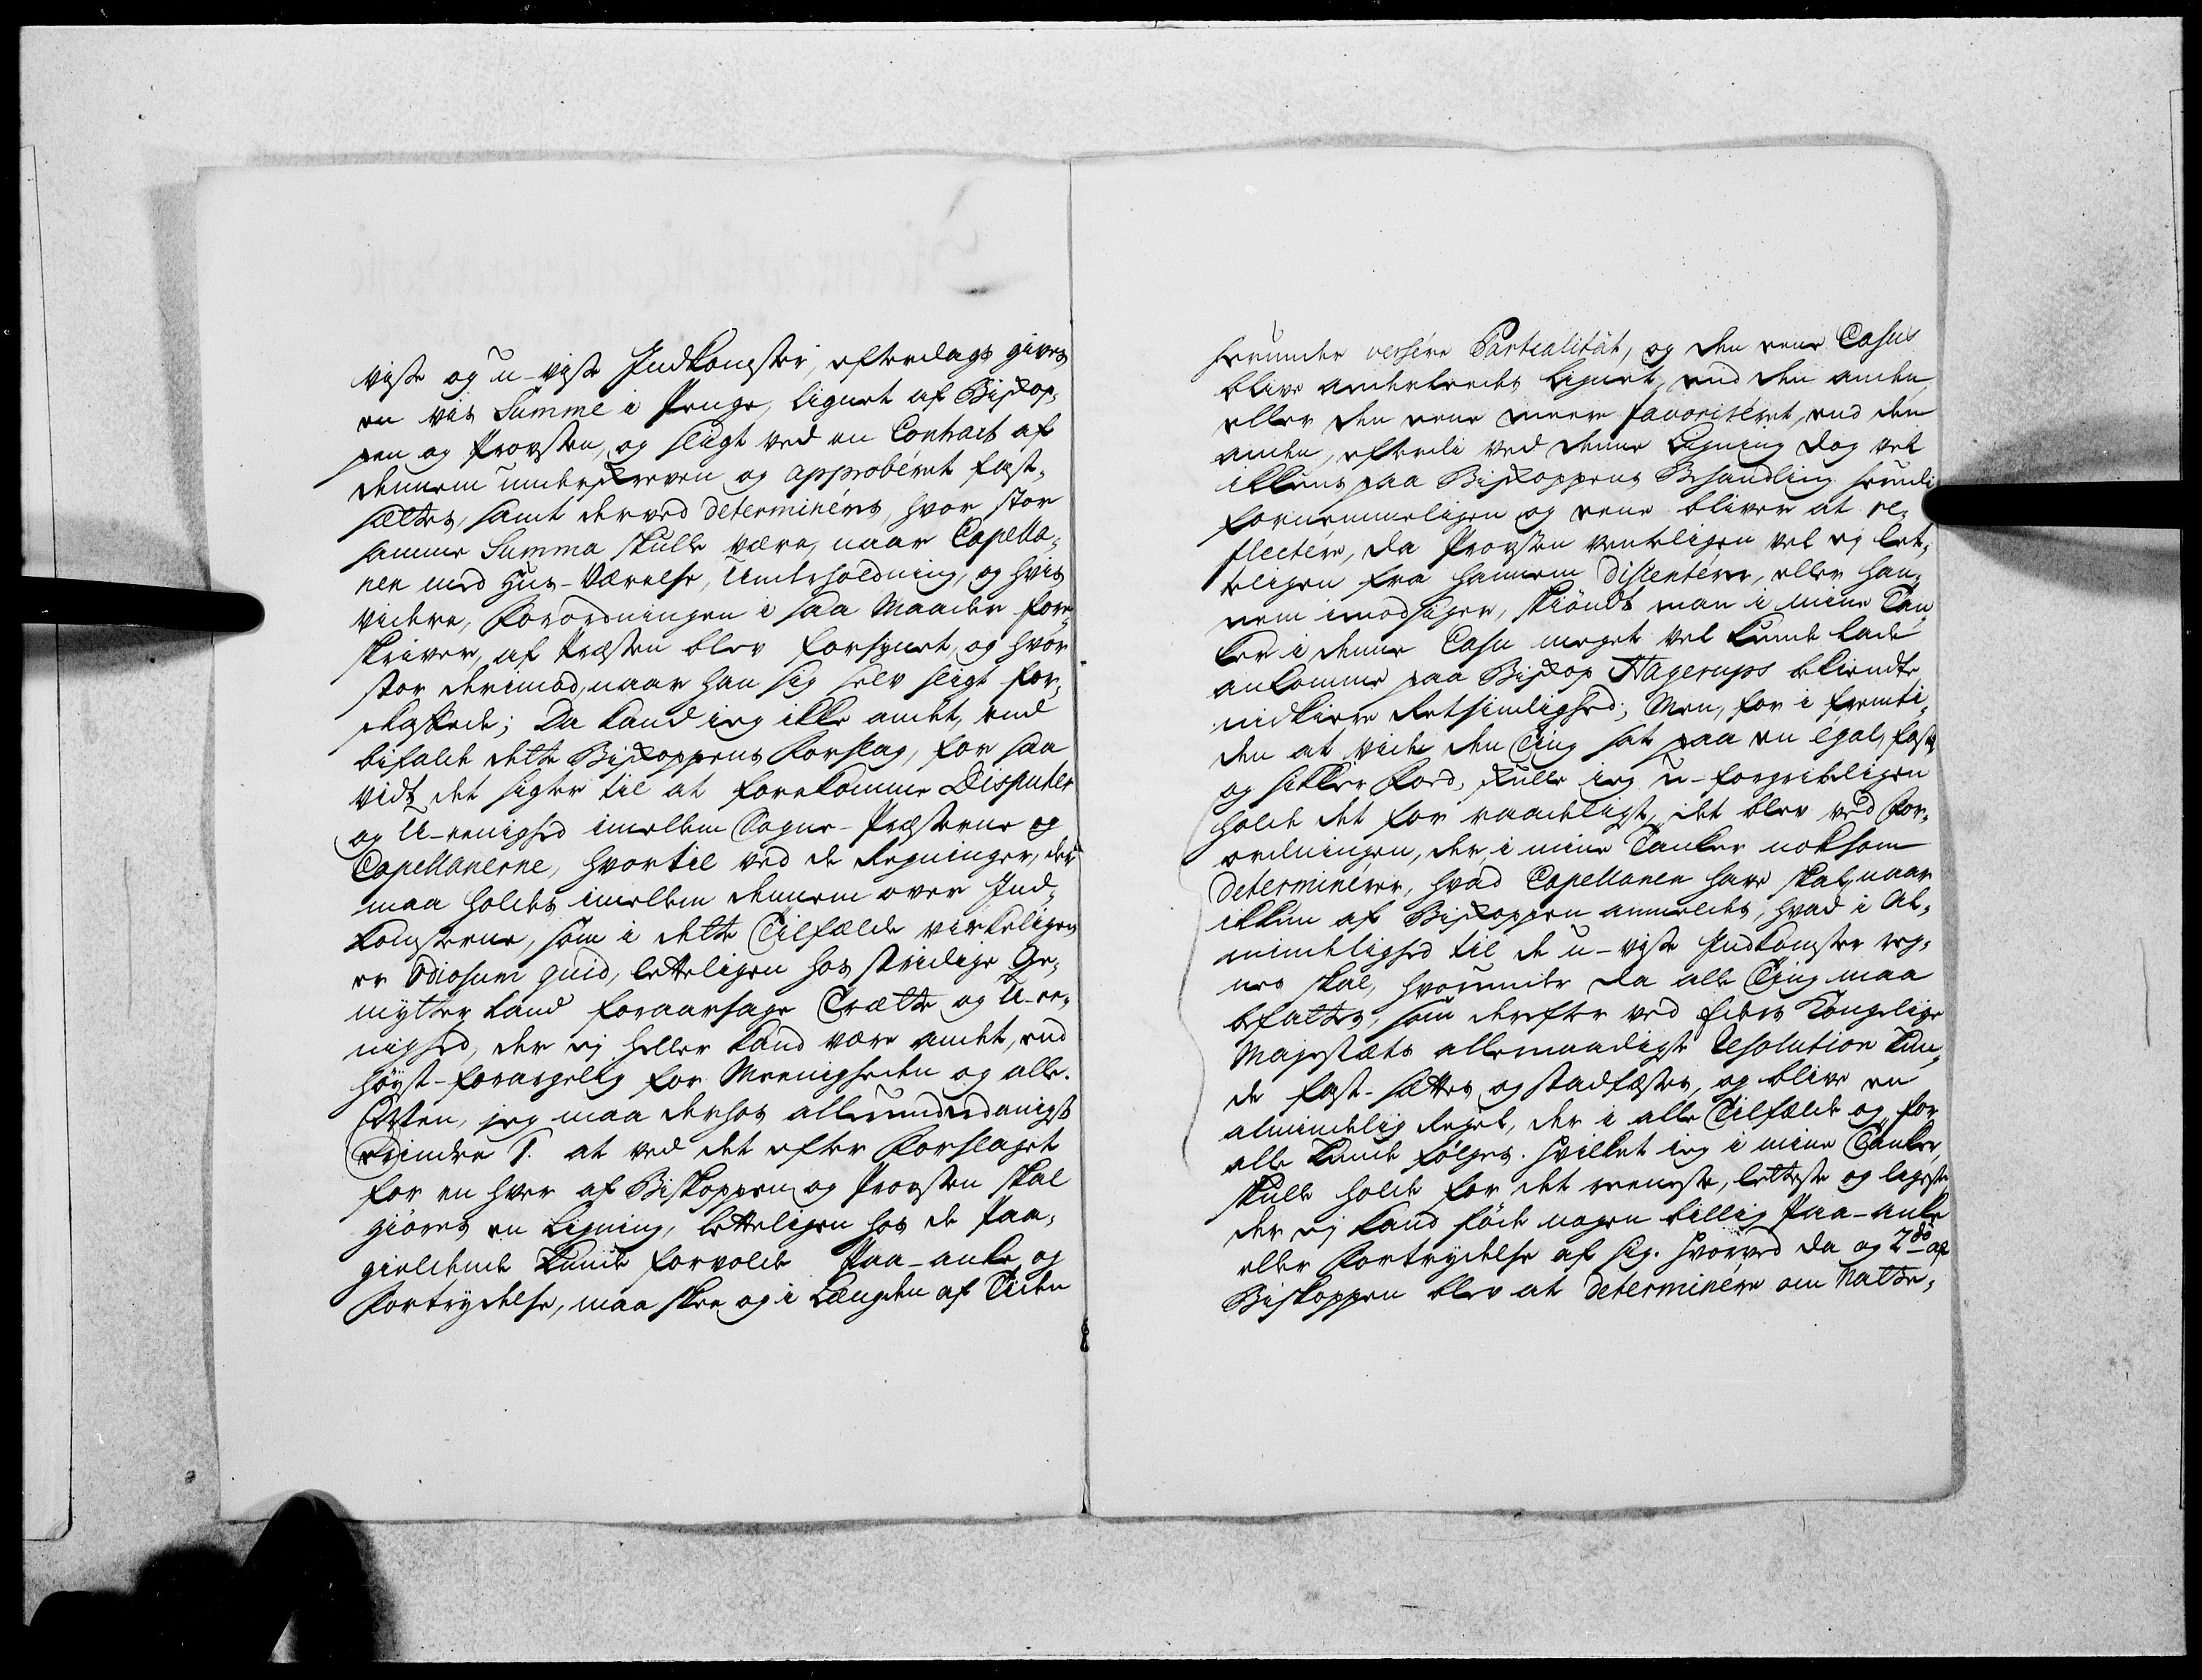 visse og u-visse Indkomster, efterdags gives
en vis Summe i Penge, lignet af Biskop-
pen og Provsten, og sligt ved en Contract af
dennem underskreven og approbéret fast-
sættes, samt derved determinéres, hvor stor
samme Summa skulle være, naar Capella-
nen med Huus-Værelse, Underholdning, og hvis
videre, Forordningen i saa Maader fore-
skriver, af Præsten blev forsynet, og hvor
stor derimod, naar han sig selv sligt for-
skaffede; Da kand ieg ikke andet, end
bifalde dette Biskoppens Forslag, for saa
vidt det sigter til at forekomme Disputer
og U-eenighed imellem Sogne-Præsterne og
Capellanerne, hvortil ved de Regninger, der
maa holdes imellem dennem over Ind-
komsterne, som i dette Tilfælde virkeligen
er odiosum quid, letteligen hos stridige Ge-
mytter kand foraarsage Trætte og U-ee-
nighed, der ej heller kand være andet, end
høyst-forargelig for Meenigheden og alle.
Men, jeg maa derhos allerunderdanigst
erindre 1. at ved det efter Forslaget
for en hver af Biskoppen og Provsten skal
giøres en Ligning, letteligen hos de Paa-
gieldende kunde forvolde Paa-anke og
Fortrydelse, maa skee og i Længden af Tiden
herunder versére Partialität, og den eene Casus
blive anderledes lignet, end den anden,
eller den eene meere favoriséret, end den
anden, efterdi ved denne Ligning dog vel
ikkuns paa Biskoppens Behandling herudi
fornemmeligen og eene bliver at re-
flectére, da Provsten venteligen vel ej let-
teligen fra hannem dissentérer, eller han-
nem imodsiger, skiøndt man i mine Tan-
ker i denne Casu meget vel kunde lade
ankomme paa Biskop Hagerups bekiendte
nidkiere Retsindighed; Men, for i Fremti-
den at vide den Ting sat paa en egal, fast
og sikker Foed, skulle ieg u-forgribeligen
holde det for raadeligt, det blev ved For-
ordningen, der i mine Tanker noksom
determinérer, hvad Capellanen have skal, naar
ikkun af Biskoppen anmeldes, hvad i Al-
mindelighed til de u-visse Indkomster reg-
nes skal, hvorunder da alle Ting maa
befattes, som derefter ved Eders Kongelige
Majestæts allernaadigste Resolution kun-
de fast-sættes og stadfæstes, og blive en
almindelig Regel, der i alle Tilfælde og for
alle kunde følges. Hvilket ieg i mine Tanker
skulle holde for det reeneste, letteste og ligeste
der ej kand føde nogen billig Paa-anke
eller Fortrydelse af sig. Hvorved da og 2do af
Biskoppen blev at determinére om Natte-